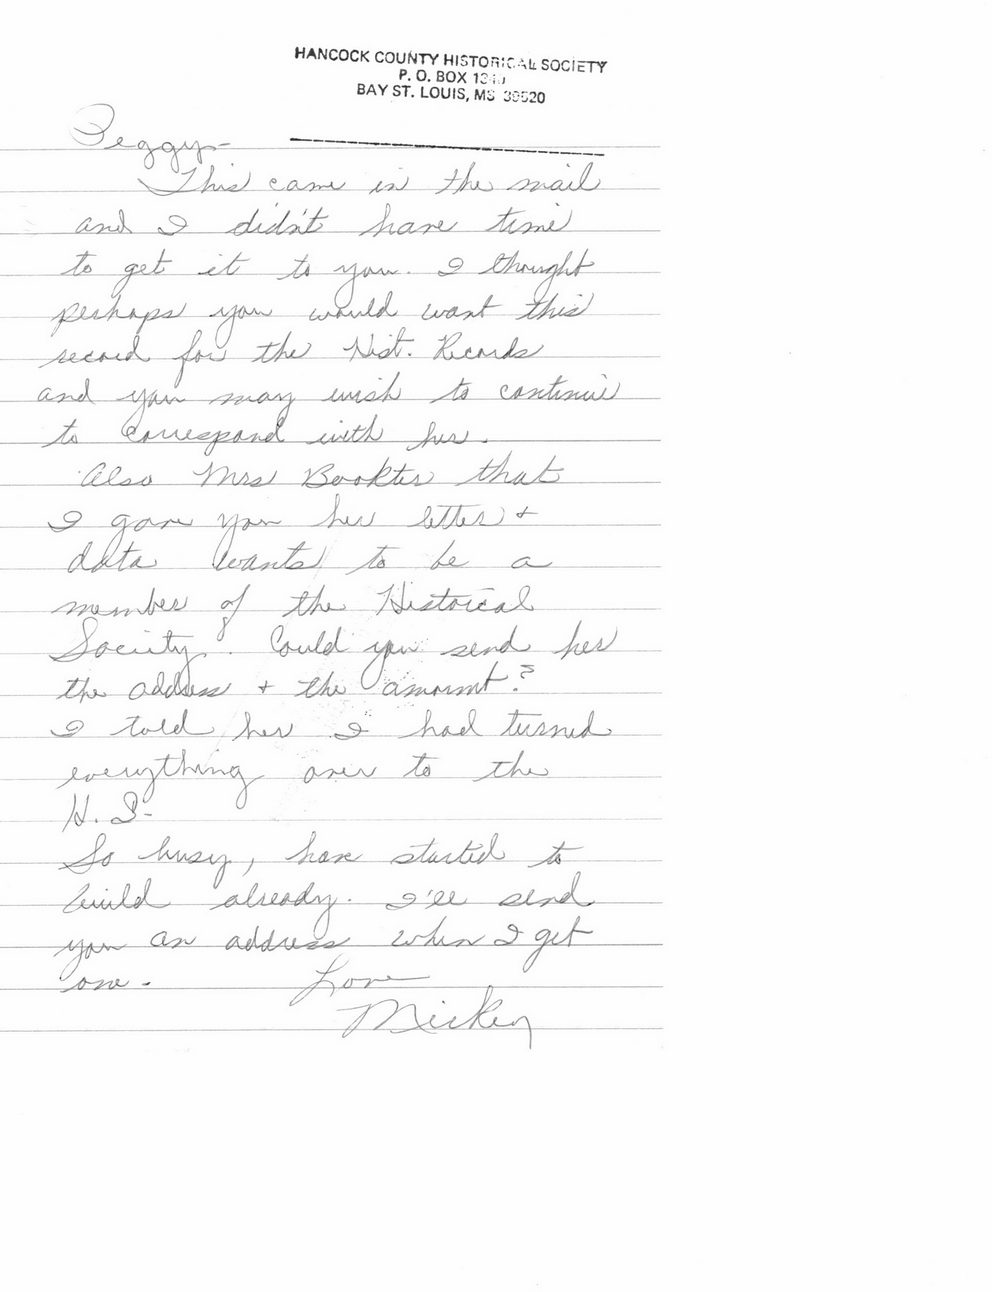 HANCOCK COUNTY HISTORICAL SOCIETY
P. O. BOX
BAY ST. LOUIS, MS 39520
Peggy-
This came in the mail
and I didn't have time
to get it to you. I thought
perhaps you would want this
record for the Hist. Records
and you may wish to continue
to correspond with her.
Also Mrs Bookter that
I gave you her letter +
data wants to be a
member of the Historical
Society. Could you send her
the address + the amount?
I told her I had turned
everything over to the
H. S-
So busy, have started to
build already. I'll send
you an address when I get
one. Love
Mickey